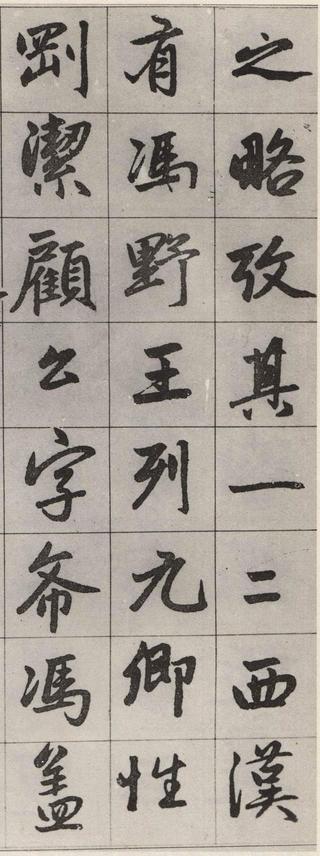 之略攷其一二西漢
有馮野王列九卿性
剛潔顧公字希馮盖